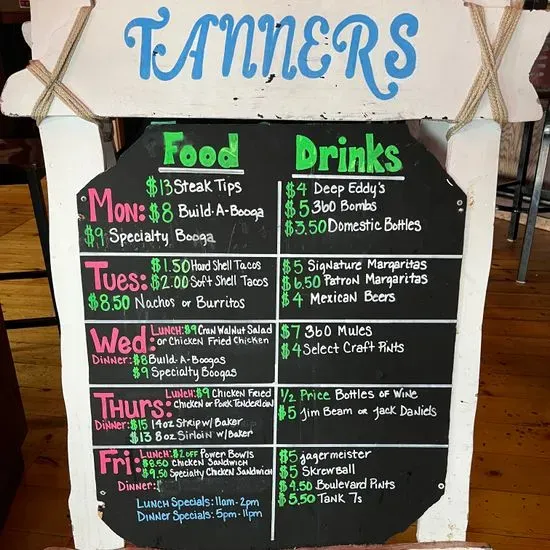 TANNERS
Food
Drinks
Mon:
$13 Steak Tips
$8 Build-A-Booga
$9 Specialty Booga
$4 Deep Eddy's
$5 360 Bombs
$3.50 Domestic Bottles
Tues:
$1.50 Hard Shell Tacos
$2.00 Soft Shell Tacos
$8.50 Nachos or Burritos
$5 Signature Margaritas
$6.50 Patron Margaritas
$4 Mexican Beers
Wed:
Lunch: $9 Cran Walnut Salad
or Chicken Fried Chicken
Dinner: $8 Build-A-Boogas
$9 Specialty Boogas
$7 360 Mules
$4 Select Craft Pints
Thurs:
Lunch: $9 Chicken Fried
Chicken or Pork Tenderloin
Dinner: $15 14oz Strip w/Baker
$13 8oz Sirloin w/Baker
1/2 Price Bottles of Wine
$5 Jim Beam or Jack Daniels
Fri:
Lunch: $2 off Power Bowls
$8.50 Chicken Sandwich
$9.50 Specialty Chicken Sandwich
Dinner:
$5 Jagermeister
$5 Skrewball
$4.50 Boulevard Pints
$5.50 Tank 7s
Lunch Specials: 11am-2pm
Dinner Specials: 5pm-11pm